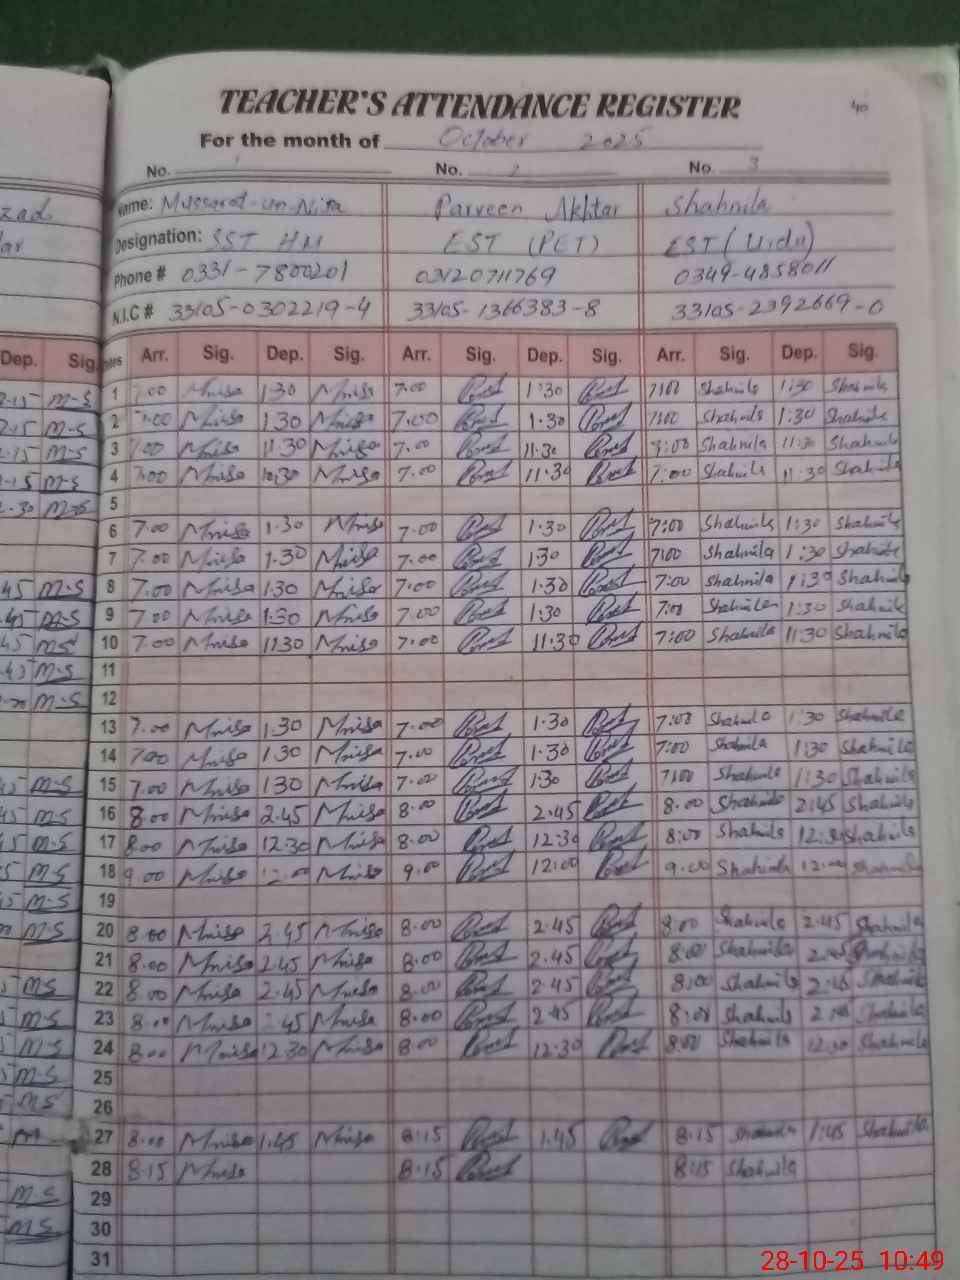 TEACHER'S ATTENDANCE REGISTER
40
For the month of October 2025
No. 1 No. 2 No. 3
Name: Mussarat-un-Nisa Parveen Akhtar Shahnila
Designation: SST HM EST (PET) EST (Urdu)
Phone # 0331-7800201 03120711769 0349-4858011
N.I.C # 33105-0302219-4 33105-1366383-8 33105-2392669-0
Dep. Sig. Dates Arr. Sig. Dep. Sig. Arr. Sig. Dep. Sig. Arr. Sig. Dep. Sig.
M-S 1 7.00 Mnisa 1.30 Mnisa 7.00 1.30 7:00 Shahnila 1:30 Shahnila
M-S 2 7.00 Mnisa 1.30 Mnisa 7.00 1.30 7:00 Shahnila 1:30 Shahnila
M-S 3 7.00 Mnisa 11.30 Mnisa 7.00 11.30 Shahnila 11:30 Shahnila
M-S 4 7.00 Mnisa Mnisa 7.00 11.30 7:00 Shahnila 11:30 Shahnila
5
6 7.00 Mnisa 1.30 Mnisa 7.00 1.30 7:00 Shahnila 1:30 Shahnila
7 7.00 Mnisa 1.30 Mnisa 7.00 1.30 7:00 Shahnila 1:30 Shahnila
M-S 8 7.00 Mnisa 1.30 Mnisa 7.00 1.30 7:00 Shahnila 1:30 Shahnila
M-S 9 7.00 Mnisa 1.30 Mnisa 7.00 1.30 7:00 Shahnila 1:30 Shahnila
10 7.00 Mnisa 11.30 Mnisa 7.00 11.30 7:00 Shahnila 11:30 Shahnila
M-S 11
M-S 12
13 7.00 Mnisa 1.30 Mnisa 7.00 1.30 7:00 Shahnila 1:30 Shahnila
14 7.00 Mnisa 1.30 Mnisa 7.00 1.30 7:00 Shahnila 1:30 Shahnila
M-S 15 7.00 Mnisa 1.30 Mnisa 7.00 1.30 7:00 Shahnila 1:30 Shahnila
M-S 16 8.00 Mnisa 2.45 Mnisa 8.00 2.45 8.00 Shahnila 2:45 Shahnila
M-S 17 8.00 Mnisa 12.30 Mnisa 8.00 12.30 8:00 Shahnila Shahnila
M-S 18 9.00 Mnisa Mnisa 9.00 12.00 9.00 Shahnila 12:00 Shahnila
M-S 19
M-S 20 8.00 Mnisa 2.45 Mnisa 8.00 2.45 8:00 Shahnila 2.45 Shahnila
21 8.00 Mnisa 2.45 Mnisa 8.00 2.45 8:00 Shahnila 2.45 Shahnila
MS 22 8.00 Mnisa 2.45 Mnisa 8.00 2.45 8:00 Shahnila 2:45 Shahnila
M-S 23 8.00 Mnisa Mnisa 8.00 2.45 8:00 Shahnila Shahnila
M-S 24 8.00 Mnisa 12.30 Mnisa 8.00 12.30 8:00 Shahnila 12:30 Shahnila
M-S 25
MS 26
M 27 8.00 Mnisa 1.45 Mnisa 8:15 1.45 8:15 Shahnila 1:45 Shahnila
28 8.15 Mnisa 8.15 8:15 Shahnila
M-S 29
MS 30
31
28-10-25 10:49